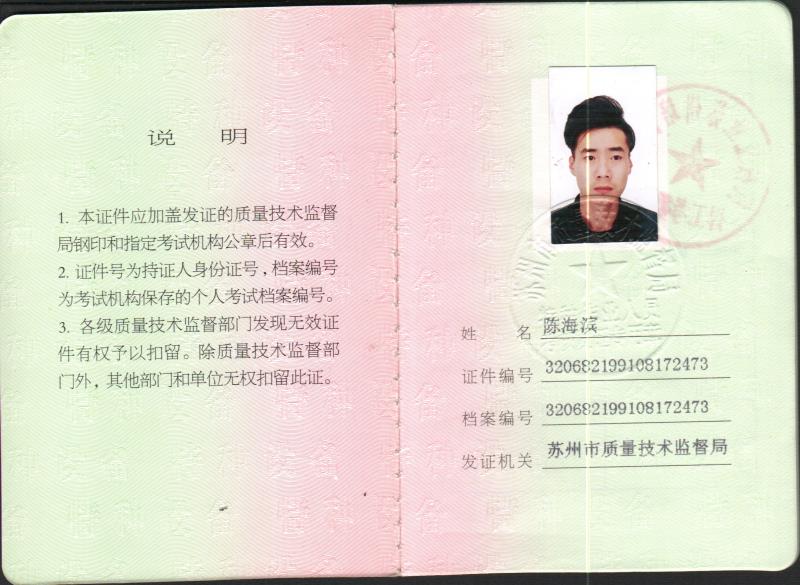 说 明
1. 本证件应加盖发证的质量技术监督
局钢印和指定考试机构公章后有效。
2. 证件号为持证人身份证号，档案编号
为考试机构保存的个人考试档案编号。
3. 各级质量技术监督部门发现无效证
件有权予以扣留。除质量技术监督部
门外，其他部门和单位无权扣留此证。
姓 名 陈海滨
证件编号 320682199108172473
档案编号 320682199108172473
发证机关 苏州市质量技术监督局